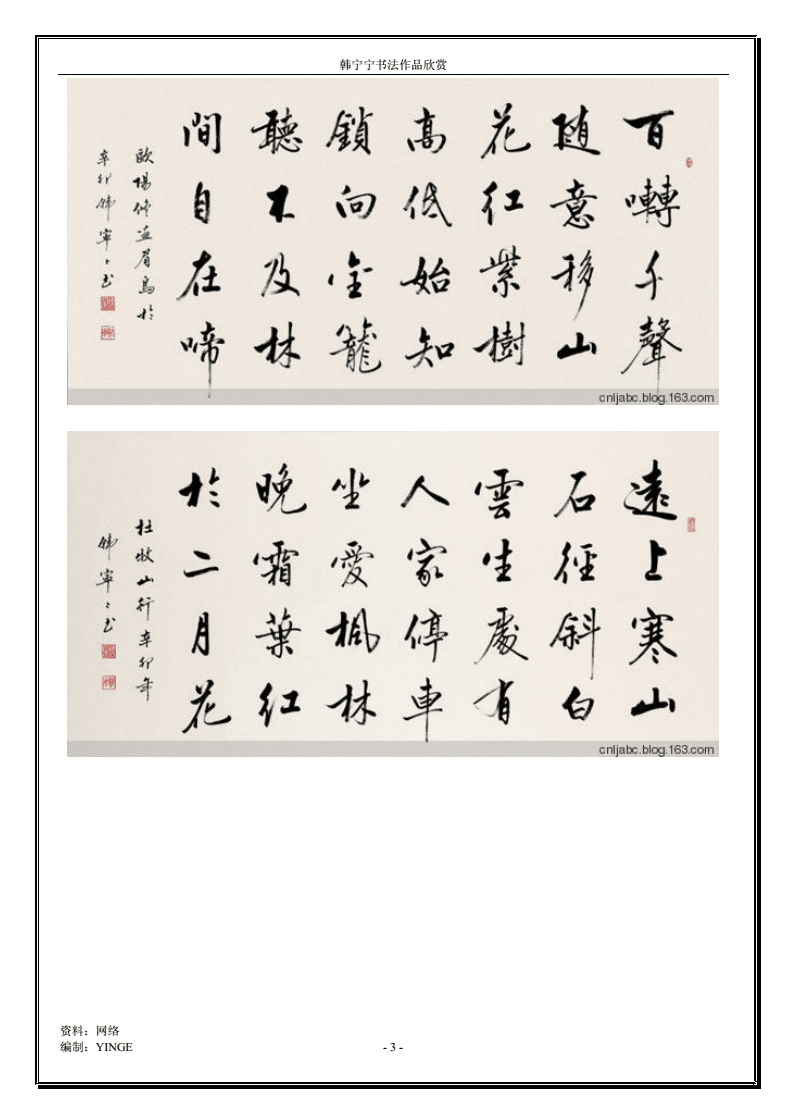 韩宁宁书法作品欣赏
百囀千聲
随意移山
花红紫樹
高低始知
鎖向金籠
聽不及林
間自在啼
歐陽修畫眉鳥
辛卯韩寧〻书
cnljabc.blog.163.com
遠上寒山
石徑斜白
雲生處有
人家停車
坐愛楓林
晚霜葉红
於二月花
杜牧山行辛卯年
韩寧〻书
cnljabc.blog.163.com
资料：网络
编制：YINGE
- 3 -